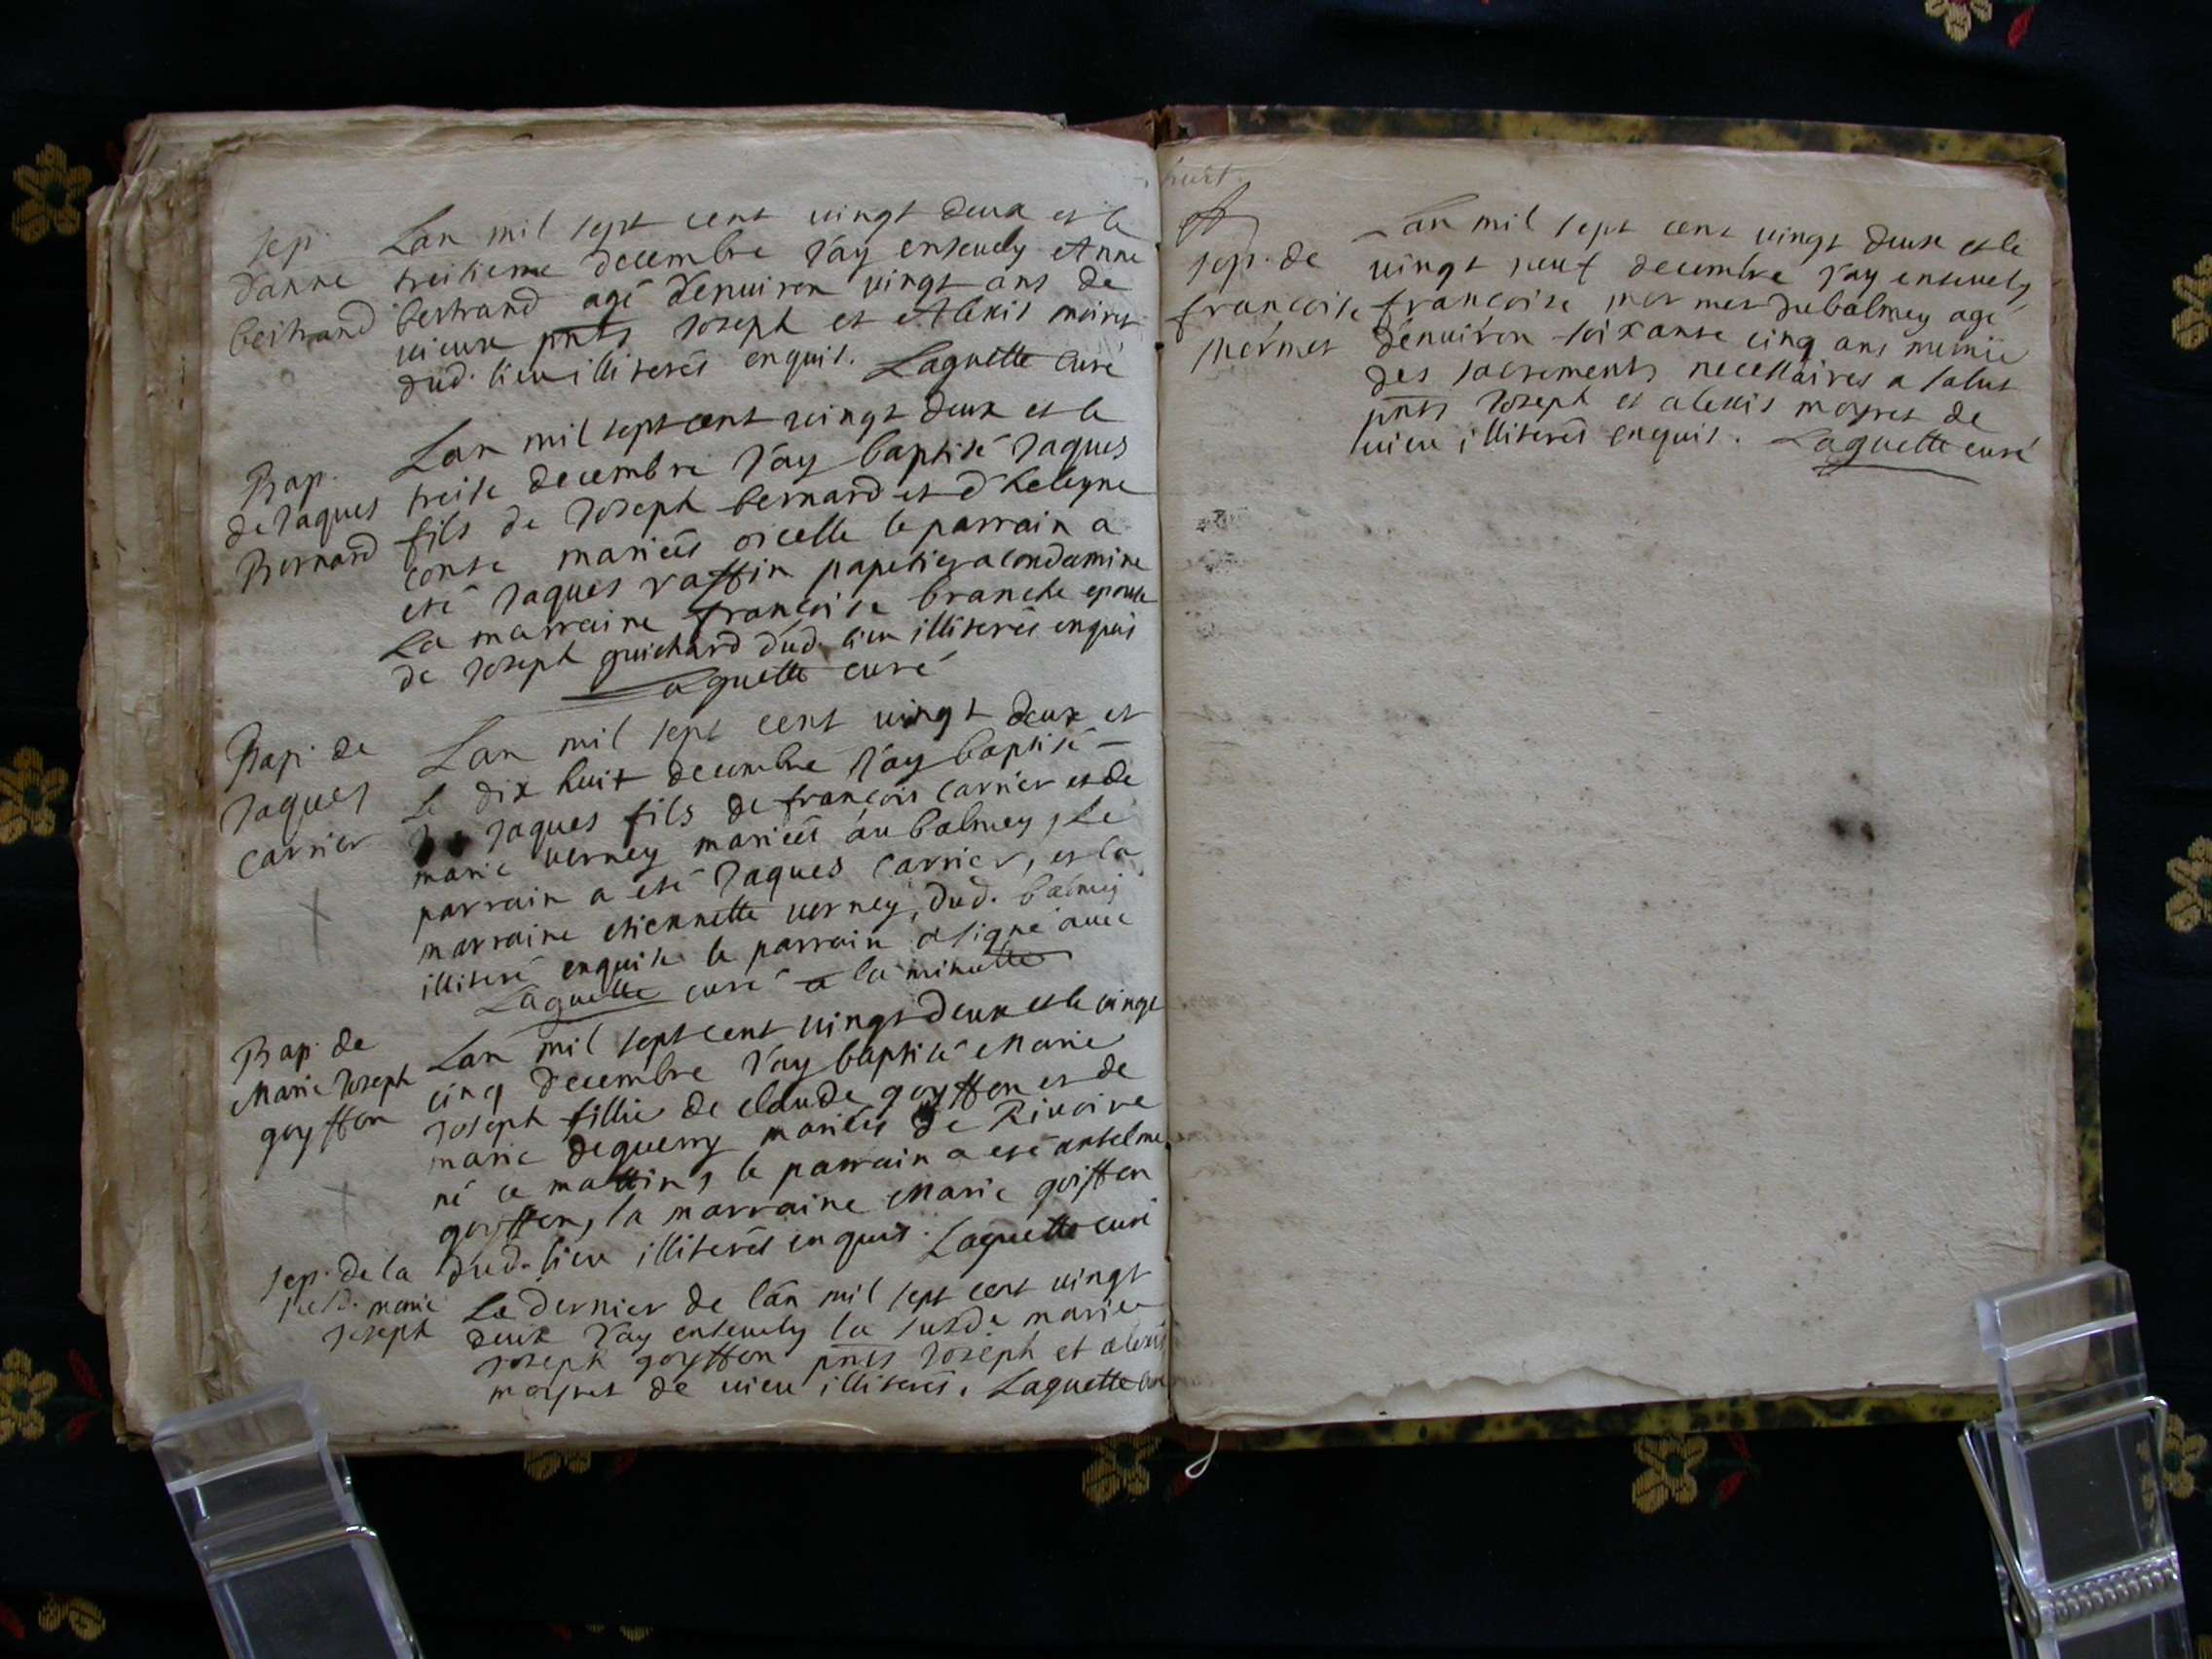 Sep.
danne
bertrand
Lan mil sept cent vingt deux et le
treisieme decembre J'ay ensevely Anne
bertrand agé d'enuiron vingt ans de
uieux pnts Joseph et Alexis moiret
dud. lieu illiterés enquis. Laguette Curé
Bap.
de Jaques
Bernard
Lan mil sept cent vingt deux et le
treise decembre J'ay baptisé Jaques
fils de Joseph bernard et d'heleyne
conte mariés oicelle le parrain a
eté Jaques raffin papetier a condamine
La marraine françoise branche epouse
de Joseph guichard dud. lieu illiterés enquis
Laguette curé
Bap. de
Jaques
Carrier
Lan mil sept cent vingt deux et
le dix huit decembre J'ay baptisé
Jaques fils de françois Carrier et de
marie verney mariés au balmey, Le
parrain a eté Jaques Carrier, et la
marraine etiennette verney, dud. balmey
illiteré enquise le parrain a signé avec
Laguette curé a la minutte
Bap. de
Marie Joseph
goyffon
Lan mil sept cent vingt deux et le vingt
cinq decembre J'ay baptisé Marie
Joseph fillie de claude goyffon et de
marie deguerry mariés de Rivoire
né ce mattin, le parrain a eté antelme
goyffon, la marraine Marie goiffon
dud. lieu illiterés enquis. Laguette curé
Sep. de la
susd. marie
Joseph
Le dernier de lán mil sept cent vingt
deux J'ay ensevely la susde marie
Joseph goyffon pnts Joseph et alexis
moyret de uieu illiterés. Laguette curé
huit.
Sep. de
françoise
mermet
Lan mil sept cent vingt deux et le
vingt neuf decembre J'ay ensevely
françoise mermet du balmey agé
d'enuiron soixante cinq ans munie
des sacrements necessaires a salut
pnts Joseph et alexis moyret de
uieu illiterés enquis. Laguette curé